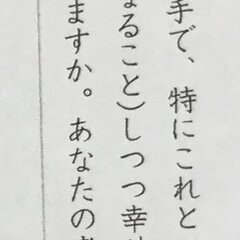 手で、特にこれと
ること)しつつ幸
ますか。あなたの